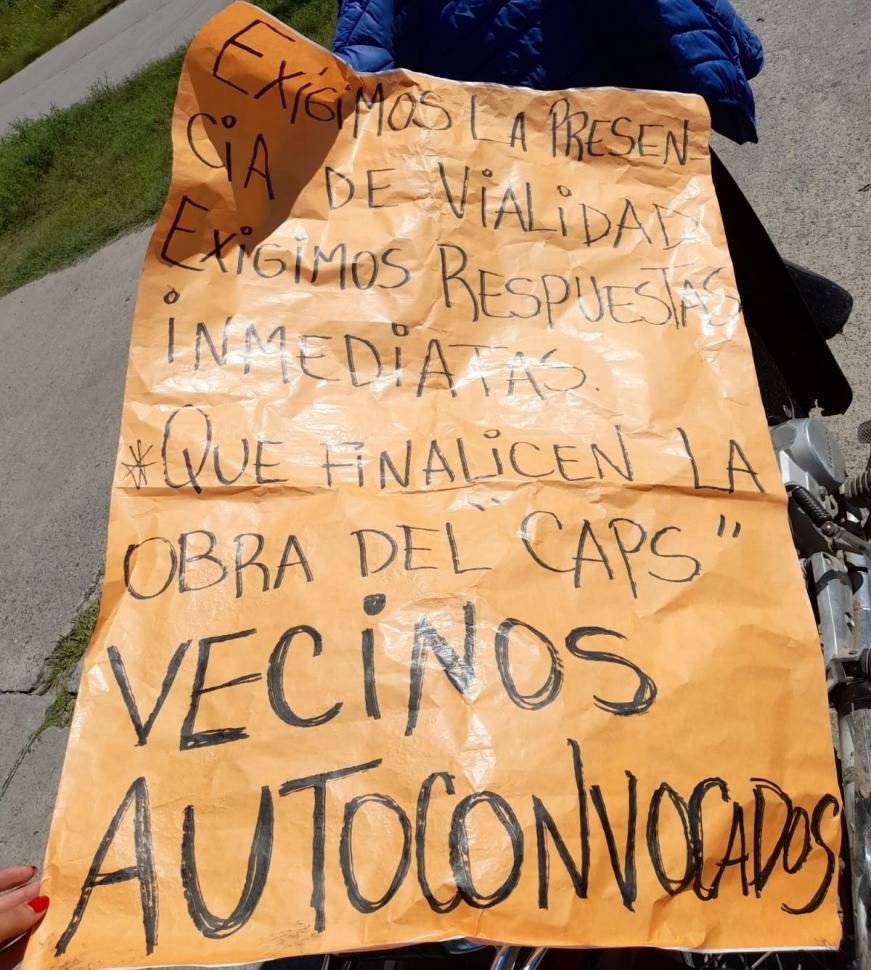 EXiGiMOS LA PRESEN-
CiA DE ViALiDAD
EXiGiMOS RESPUESTAS
iNMEDiATAS.
*QUE FiNALiCEN LA
OBRA DEL "CAPS"
VECiNOS
AUTOCONVOCADOS